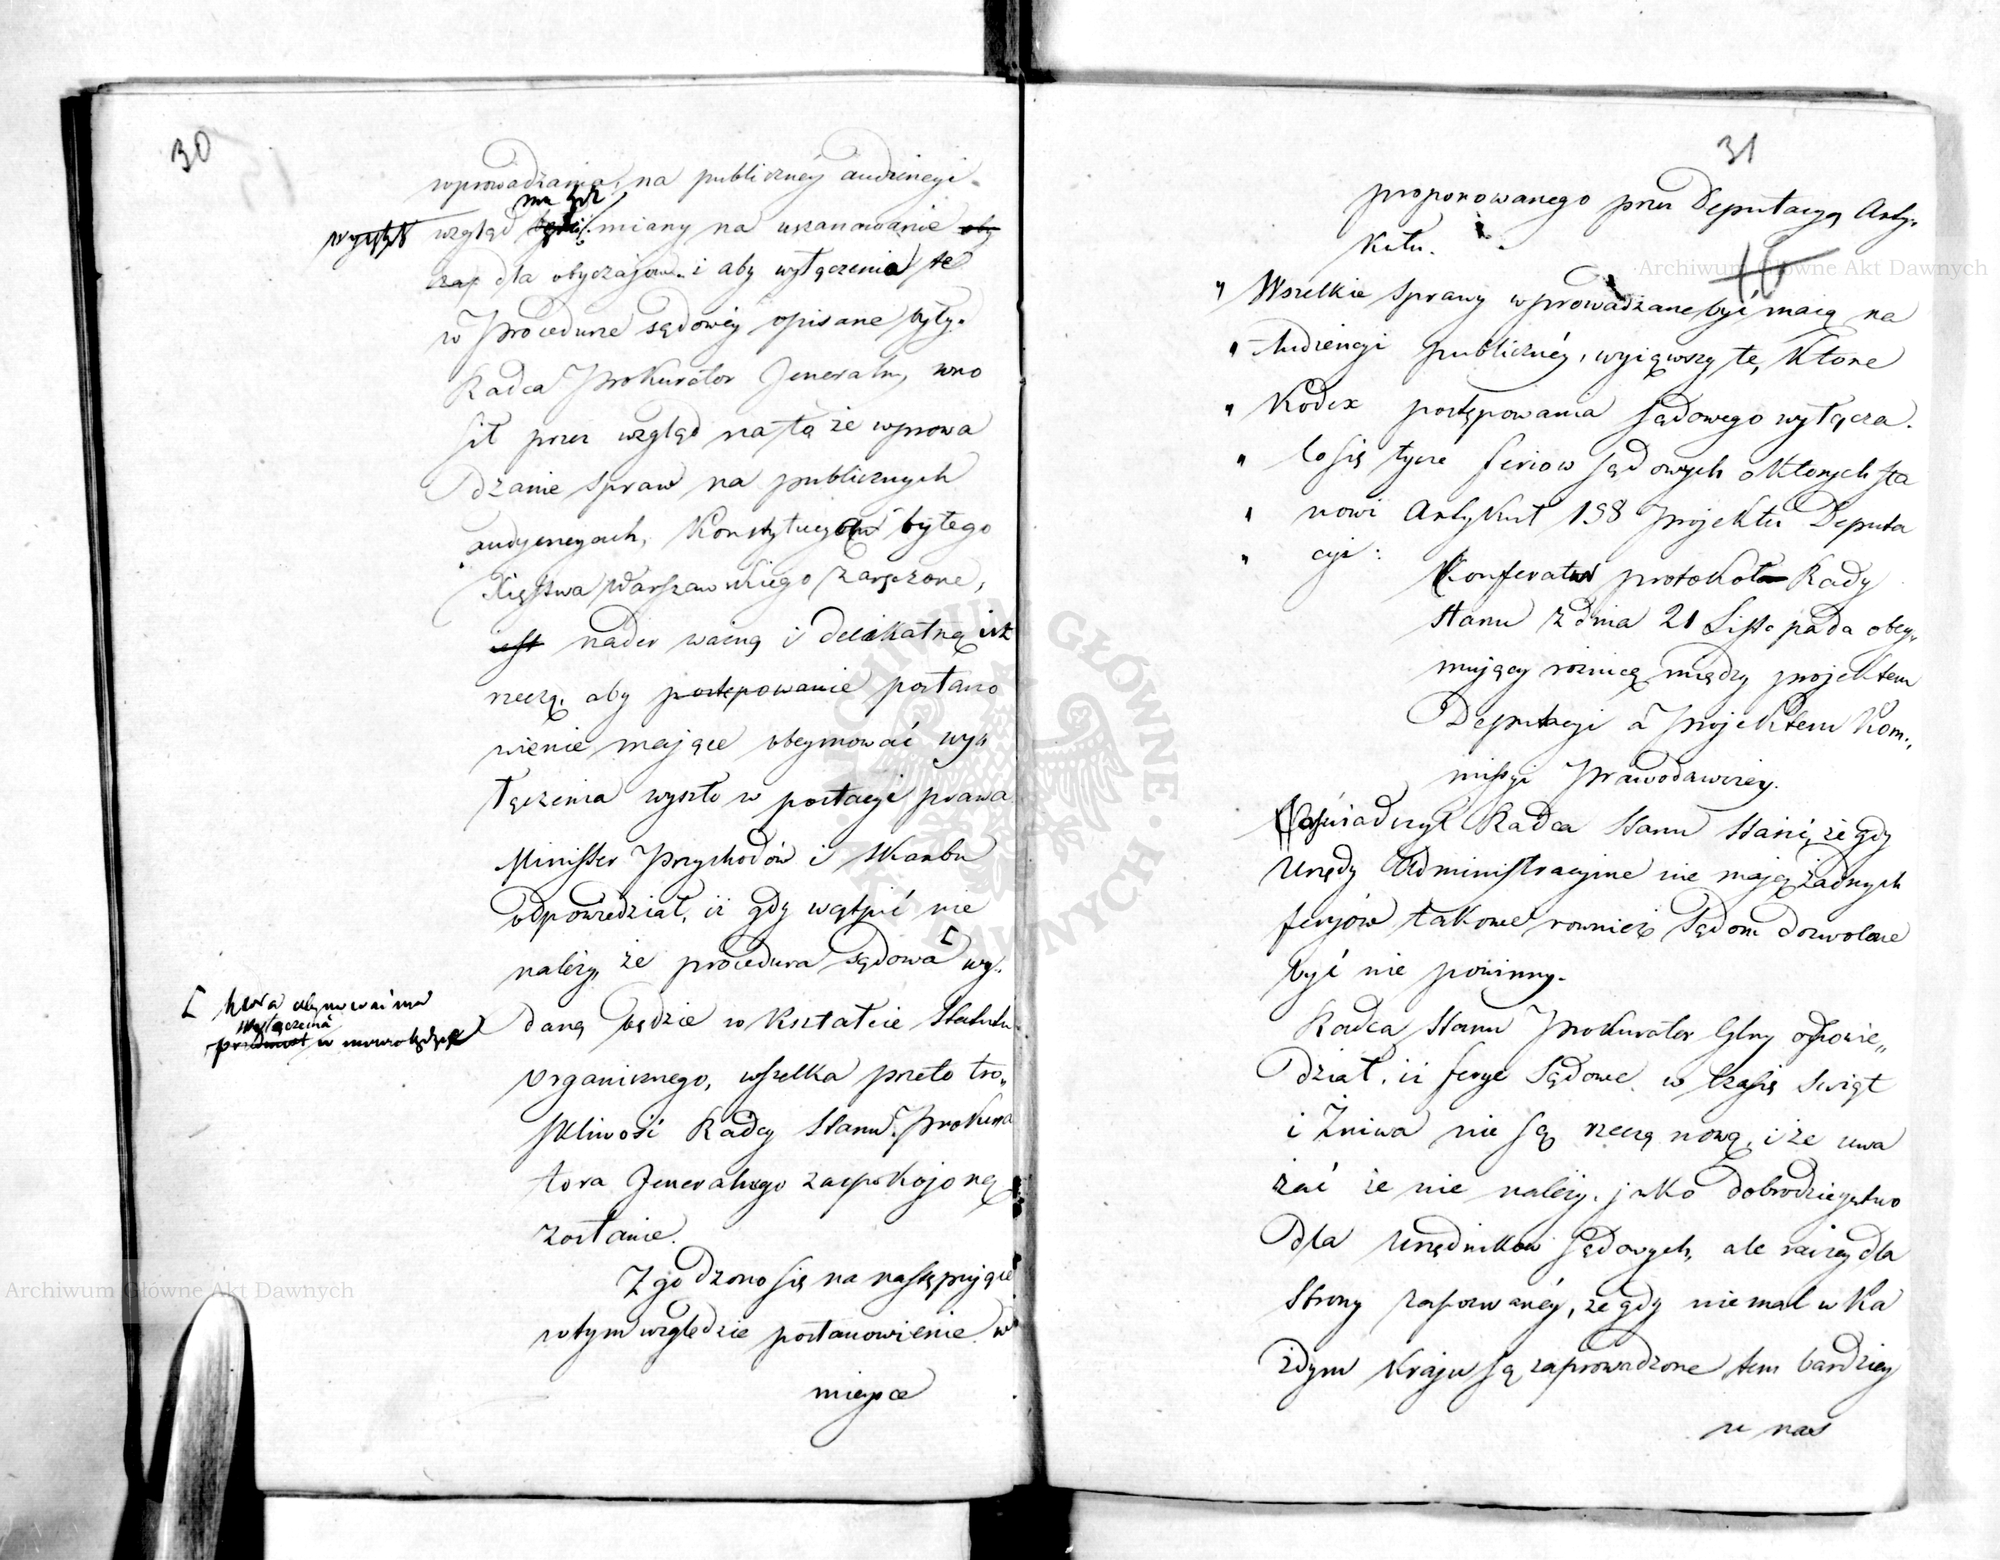 30
wprowadzania, na publiczney audiencyi
ma bydź
wzgląd miany na uszanowanie oby
czaj dla obyczajow i aby wyłączenia te
w Procedurze sądowéy opisane były.
Radca Prokurator Jeneralny wno
sił przez wzgląd na to że wprowa
dzanie spraw na publicznych
audyencyach, Konstytucyą byłego
Xięstwa Warszawskiego zaręczone,
jest nader ważną i delikatną jest
rzeczą, aby postępowanie postano
wienie mające obeymować wy
łączenia wyszło w postaci prawa
Minister Przychodów i Skarbu
odpowiedział, iż gdy wątpić nie
należy, że procedura sądowa [ wy-
[ która obeymować ma
wyłączenia
przedmiot w mowie będące
daną będzie w kształcie Statutu
Organicznego, wszelka przeto tro„
skliwość Radcy Stanu Prokura
tora Jeneralnego zaspokojoną
zostanie.
Zgodzono się na następujące
w tym względzie postanowienie w
mieysce
31
proponowanego przez Deputacyą Arty„
kułu.
16
„ Wszelkie Sprawy wprowadzane być maią na
„ Audiencyi publicznéy, wyiąwszy te, które
„ Kodex postępowania sądowego wyłącza.
„ Co się tycze feriow sądowych o których sta
„ nowi Artykuł 198 Projektu Deputa
„ cyi:
Konferatur protokoł Rady
Stanu z dnia 21 Listopada obey„
mujący rożnicę między projektem
Deputacyi a Projektem Kom„
missyi Prawodawczey.
Oświadczył Radca Stanu Stanię, że gdy
Urzędy Administracyine nie mają żadnych
feryów takowe rownież Sądom dozwolone
być nie powinny.
Radca Stanu Prokurator Glny odpowie„
dział, iż ferye Sądowe w czasie Swiąt
i Żniwa nie są rzeczą nową, i że uwa
żać że nie należy, jako dobrodzieystwo
dla Urzędników Sądowych, ale raczey dla
Strony zapozwanéy, że gdy niemal w ka
żdym kraju są zaprowadzone tem bardziey
u nas
Archiwum Główne Akt Dawnych
Archiwum Główne Akt Dawnych
ARCHIWUM GŁÓWNE AKT DAWNYCH